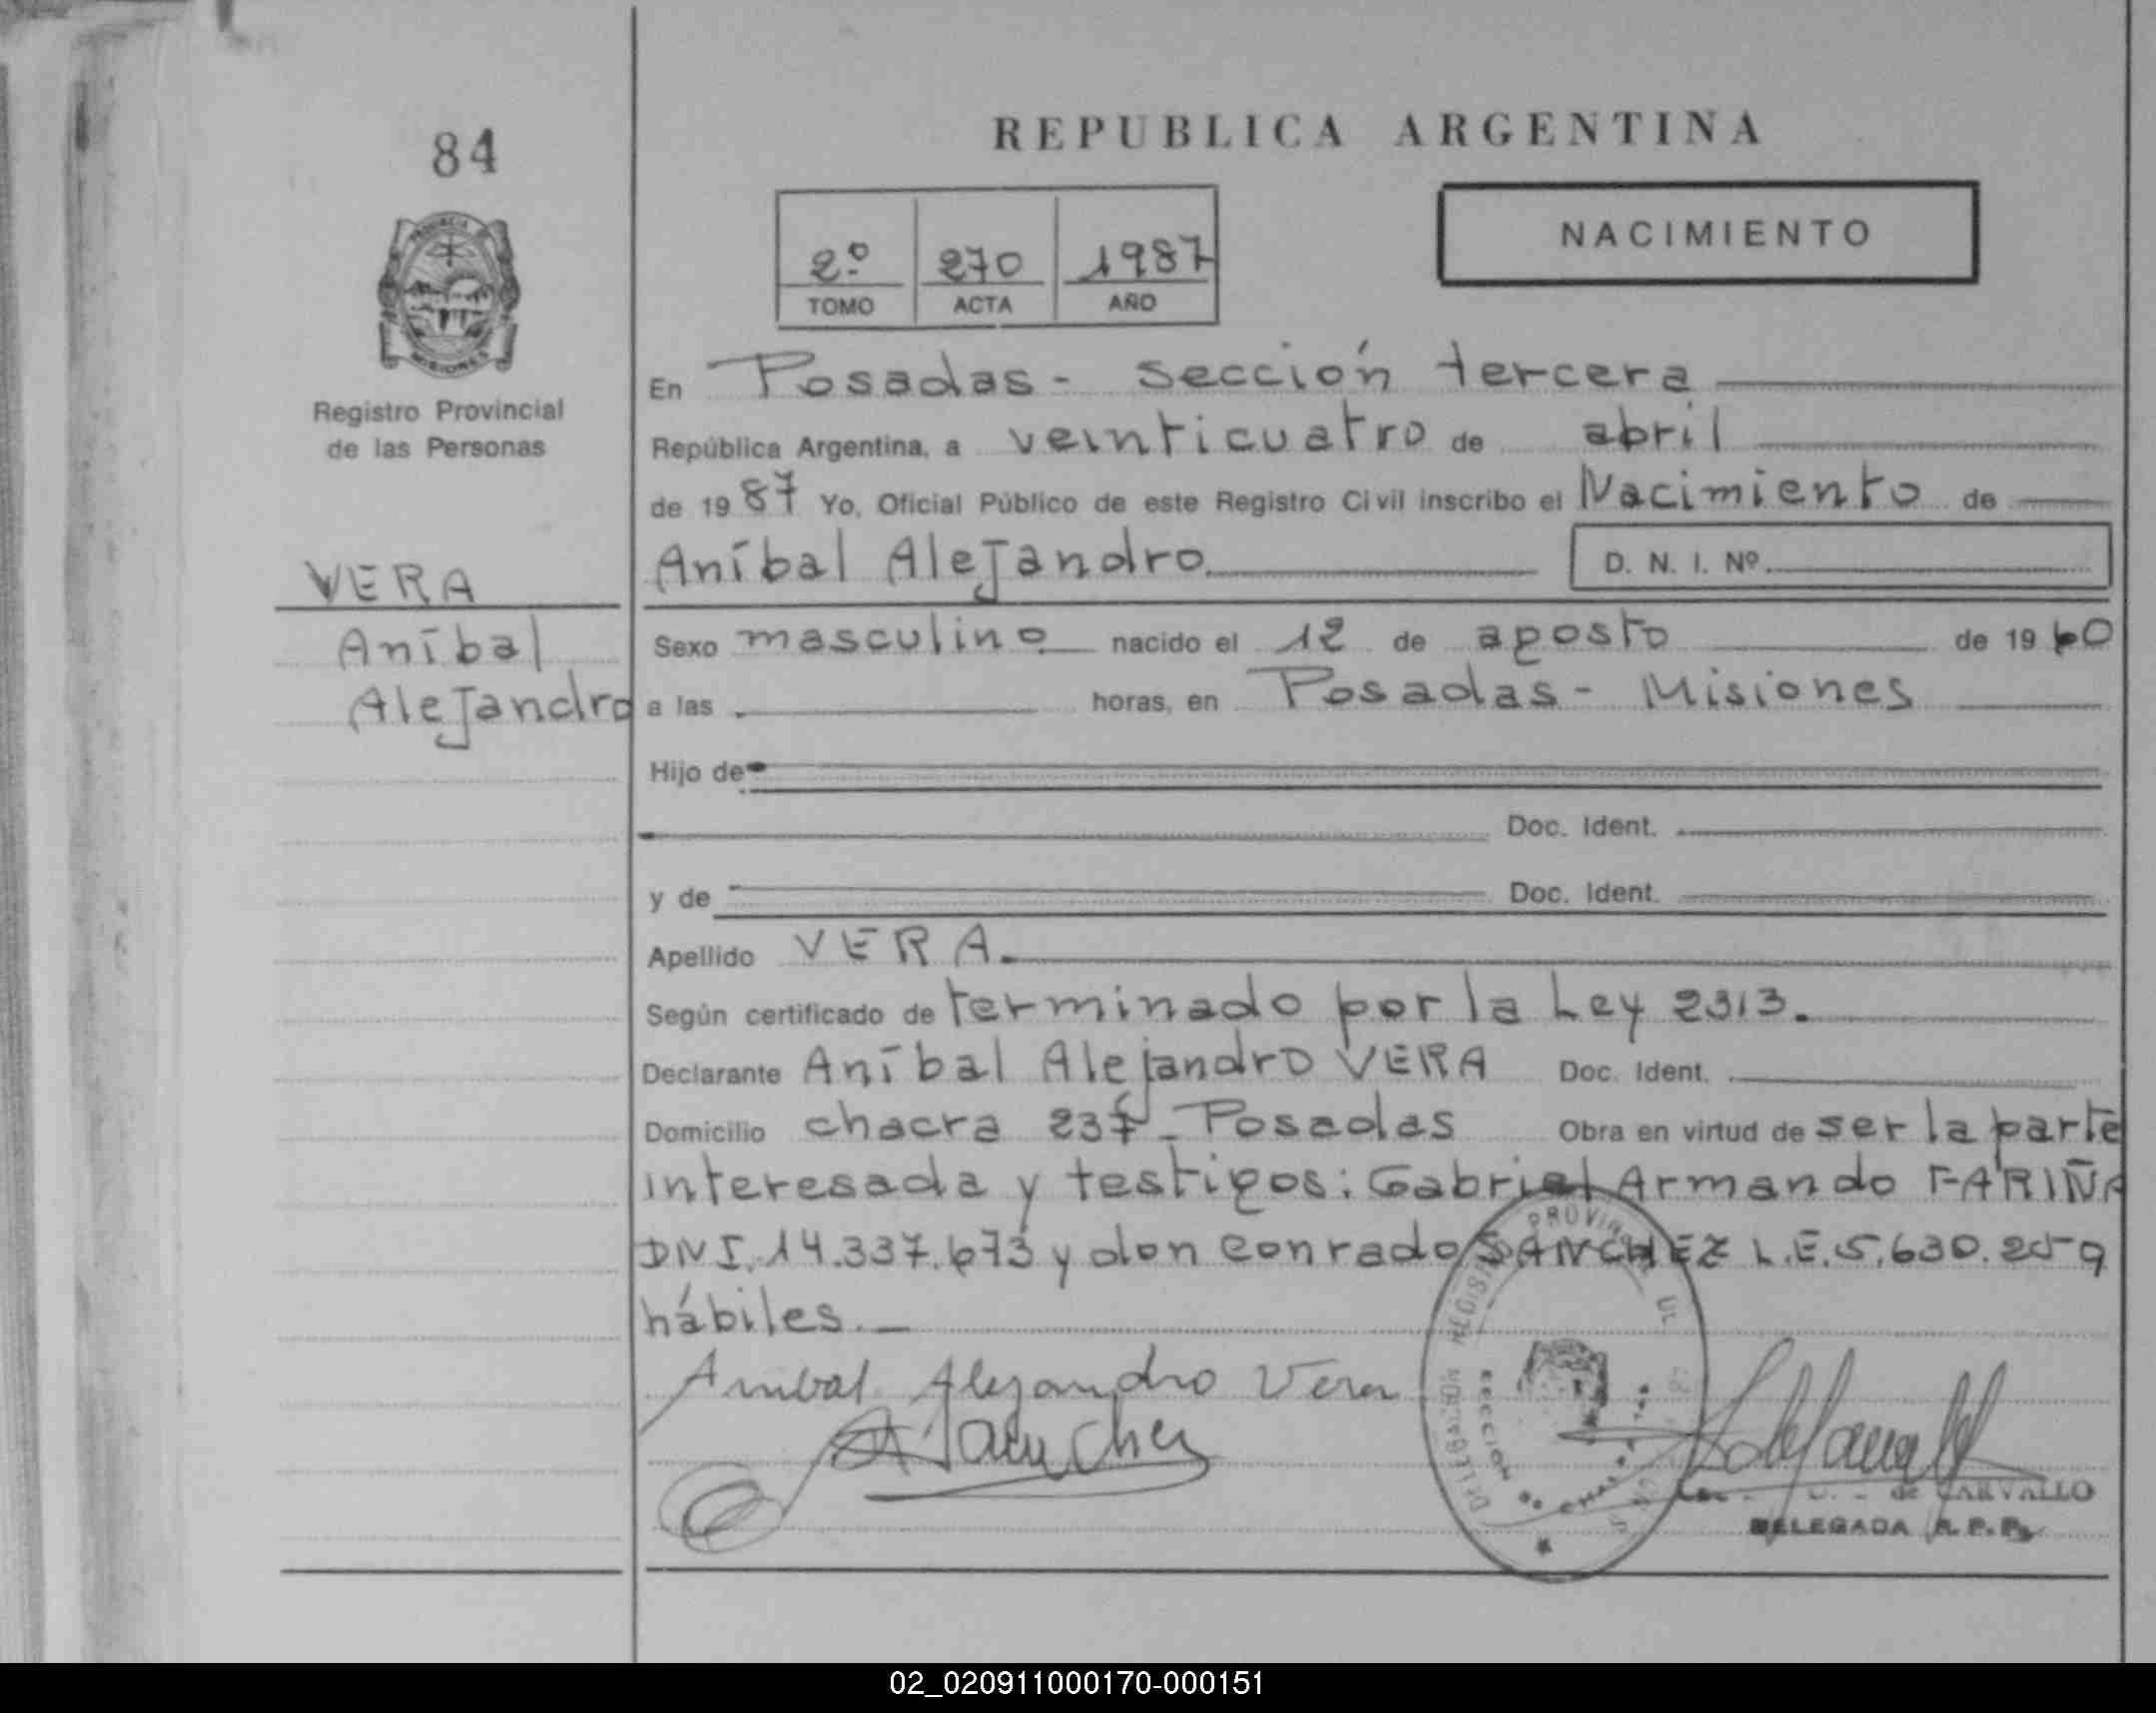 84
REPUBLICA ARGENTINA
NACIMIENTO
2º 270 1987
TOMO ACTA AÑO
PROVINCIA
MISIONES
Registro Provincial
de las Personas
VERA
Aníbal
Alejandro
En Posadas - sección tercera
República Argentina, a veinticuatro de abril
de 1987 Yo, Oficial Público de este Registro Civil inscribo el Nacimiento de
Aníbal Alejandro D. N. I. Nº
Sexo masculino nacido el 12 de agosto de 1960
a las horas, en Posadas - Misiones
Hijo de
Doc. Ident.
y de Doc. Ident.
Apellido VERA.
Según certificado de terminado por la Ley 2313.
Declarante Aníbal Alejandro VERA Doc. Ident.
Domicilio chacra 237 - Posadas Obra en virtud de ser la parte
interesada y testigos: Gabriel Armando FARIÑA
DNI. 14.337.673 y don Conrado SANCHEZ L.E. 5.630.259
hábiles. -
Anibal Alejandro Vera
Sanchez
DELEGACION REGISTRO PROVINCIAL DE
SECCION
de CARVALLO
DELEGADA R. P. P.
02_020911000170-000151